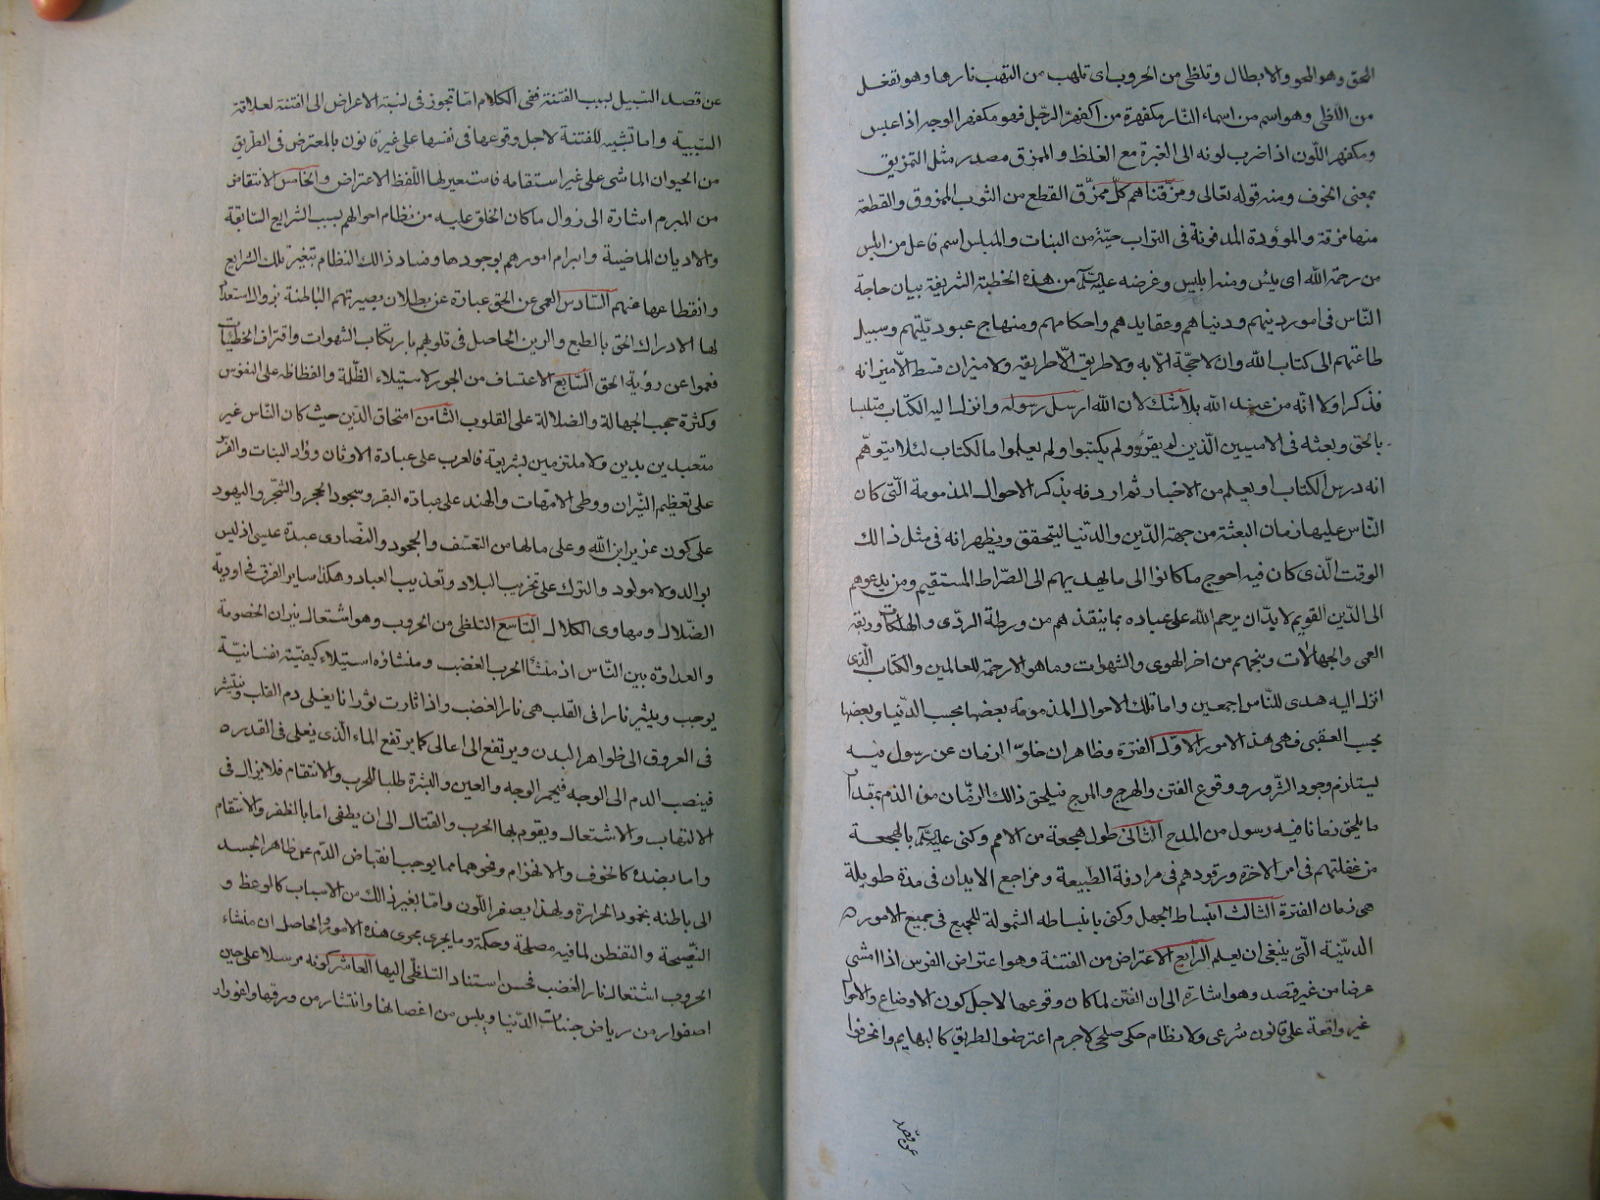 الحق وهو المحو والابطال وتلظى من الحروب اى تلهب من التهب نارها وهو تفعل
من اللظى وهو اسم من اسماء النار مكفهرة من اكفهر الرجل فهو مكفهر الوجه اذا عبس
ومكفهر اللون اذا ضرب لونه الى الغبرة مع الغلظ والممزق مصدر مثل التمزيق
بمعنى الخوف ومنه قوله تعالى ومزقناهم كل ممزق القطع من الثوب الممزوق والقطعة
منها مزقة والموؤدة المدفونة فى التراب حيّة من البنات والمبلس اسم فاعل من ابلس
من رحمة الله اى يئس ومنه ابليس وغرضه عليه السلام من هذه الخطبة الشريفة بيان حاجة
النّاس فى امور دينهم ودنياهم وعقايدهم واحكامهم ومنهاج عبوديّتهم وسبيل
طاعتهم الى كتاب الله وان لا حجّة الّا به ولا طريق الّا طريقه ولا ميزان قسط الّا ميزانه
فذكر اولا انّه من عند الله بلا شك لان الله ارسل رسوله وانزل اليه الكتاب متلبسا
بالحق وبعثه فى الاميين الّذين لم يقرؤوا ولم يكتبوا ولم يعلموا ما الكتاب لئلا يتوهّم
انه درس الكتاب او يعلم من الاخبار ثم اردفه بذكر الاحوال المذمومة الّتى كان
النّاس عليها زمان البعثة من جهة الدّين والدّنيا ليتحقق ويظهر انه فى مثل ذالك
الوقت الّذى كان فيه احوج ما كانوا الى ما يهديهم الى الصّراط المستقيم ومن يدعوهم
الى الدّين القويم لا بدّ ان يرحم الله على عباده بما ينقذهم من ورطة الردّى والهلكات وربقه
العمى والجهالات وينجهم من اخر الهوى والشهوات وما هو الا رحمة للعالمين والكتاب الّذى
انزل اليه هدى للنّاس اجمعين واما تلك الاحوال المذمومة بعضها بحسب الدّنيا وبعضها
بحسب العقبى فهى هذ الامور الاوّل الفترة وظاهر ان خلوّ الزمان عن رسول فيه
يستلزم وجود الشّرور ووقوع الفتن والهرج والمرج فيلحق ذالك الزمّان من الذم بمقدار
ما يلحق زمانا فيه رسول من المدح الثانى طول هجعة من الامم وكنى عليه السلام بالهجعة
من غفلتهم فى امر الاخرة ورقودهم فى مراقدة الطّبيعة ومراجع الابدان فى مدة طويلة
هى زمان الفترة الثالث انبساط الجهل وكنى بانبساطه الشمولة للجميع فى جميع الاموره
الدينيّة الّتى ينبغى ان يعلم الرّابع الاعتراض من الفتنة وهو اعتراض الفرس اذا مشى
عرضا من غير قصد وهو اشارة الى ان الفتن لما كان وقوعها لاجل كون الاوضاع والاحوال
غير واقعة على قانون شرعى ولا نظام حكمى صلحى لا جرم اعترضوا الطريق كالبهايم وانحرفوا
عن قصد
عن قصد السّبيل بسبب الفتنة ففى الكلام امّا تجوز فى نسبة الاعراض الى الفتنة لعلاقة
السّببية واما تشبيه للفتنة لاجل وقوعها فى نفسها على غير قانون بالمعترض فى الطّريق
من الحيوان الماشى على غير استقامه فاستعير لها اللّفظ الاعتراض والخامس الانتقاض
من المبرم اشارة الى زوال ما كان الخلق عليه من نظام احوالهم بسبب الشرايع السّابقة
والاديان الماضية وابرام امورهم بوجودها وفساد ذالك النظام بتغير تلك الشرايع
وانقطاعها عنهم السّادس العمى عن الحق عبارة عن بطلان بصيرتهم الباطنة بزوال استعداد
لها لادراك الحق بالطبع والرين الحاصل فى قلوبهم بارتكاب الشهوات واقتراف الخطيئات
فعموا عن رؤية الحق السّابع الاعتساف من الجور لاستيلاء الظّلة والفظاظه على النفوس
وكثرة حجب الجهالة والضلالة على القلوب الثامن امتحاق الدّين حيث كان النّاس غير
متعبدين بدين ولا ملتزمين بشريعة فالعرب على عبادة الاوثان ووأد البنات والفرس
على تعظيم النّيران ووطى الامّهات والهند على عبادة البقر وسجود الحجر والشّجر واليهود
على كون عزير ابن الله وعلى مالها من التعسّف والجحود والنّصارى عبدة عيسى اذ ليس
بوالد ولا مولود والترك على تخريب البلاد وتعذيب العباد وهكذا ساير الفرق فى اودية
الضّلال ومهاوى الكلال التاسع التلظى من الحروب وهو اشتعال نيران الخصومة
والعداوة بين النّاس اذ منشأ الحرب الغضب ومنشاؤه استيلاء كيفيّة نفسانيّة
يوجب ويثير نارا فى القلب هى نار الغضب واذا ثارت ثورانا يغلى دم القلب وينتشر
فى العروق الى ظواهر البدن ويرتفع الى اعالى كما يرتفع الماء الّذى يغلى فى القدره
فينصب الدم الى الوجه فيحمر الوجه والعين والبشرة طلبا للحرب والانتقام فلا يزال فى
الالتهاب والاشتعال ويقوم لها الحرب والقتال الى ان يطفى اما بالظفر والانتقام
واما بضدة كالخوف والانهزام ونحوهما مما يوجب انقباض الدّم عن ظاهر الجسد
الى باطنه بخمود الحرارة ولهذا يصفر اللّون وامّا بغير ذالك من الاسباب كالوعظ و
النّصيحة والتفطن لما فيه مصلحة وحكمة وما يجرى مجرى هذه الامور والحاصل ان منشاء
الحروب اشتعال نار الغضب فحسن استناد التلظّى اليها العاشر كونه مرسلا على حين
اصفرار من رياض جنات الدّنيا ويبس من اغصانها وانتشار من ورقها واغورار